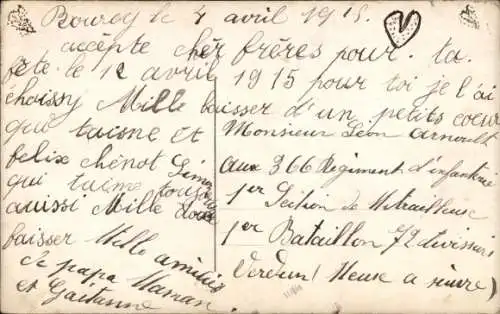 Bouroy le 4 avril 1915.
accepte cher frères pour ta
fête le 12 avril 1915 pour toi je l'ai
choissy Mille baisser d'un petits coeur
qui taisne et
felix chenot Simon
qui taime tous
auissi Mille doux
baisser Mille amitiés
de papa Maman
et Gaetanne.
Monsieur Léon arnoult
aux 366 Regiment d'infanterie
1er Section de Mitrailleuse
1er Bataillon 72 divission
Verdun (Meuse a suivre)